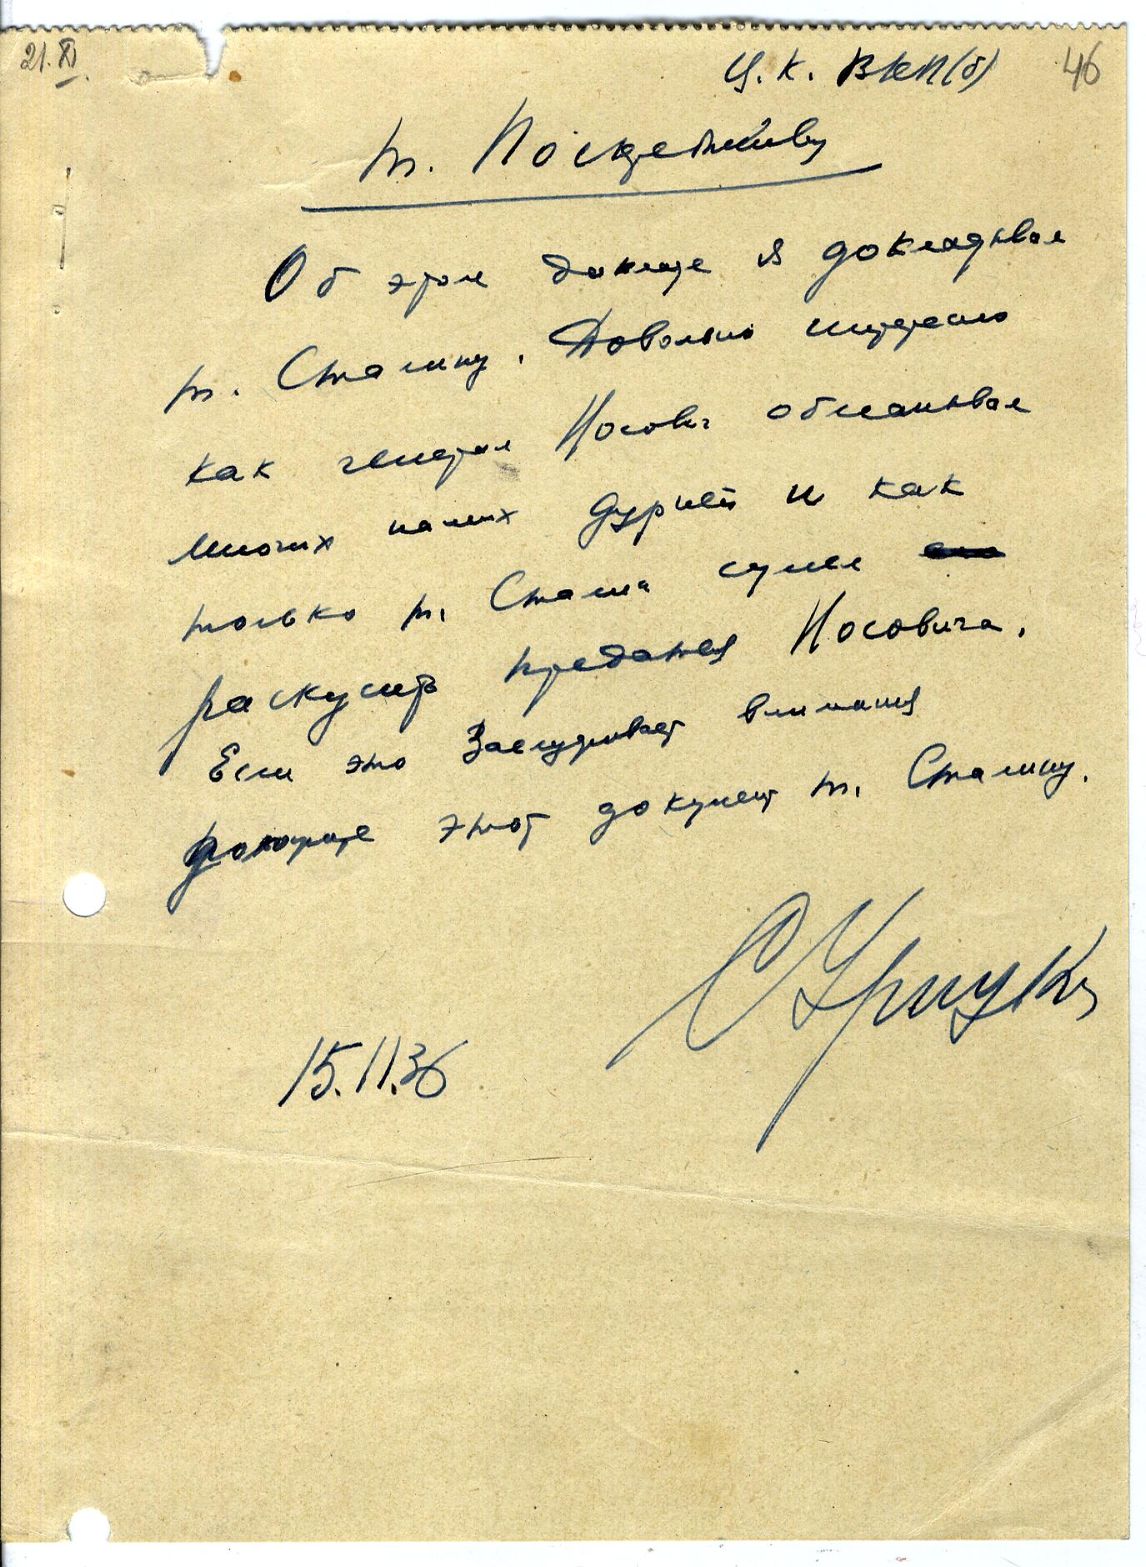 21.XI.
Ц.К. ВКП(б) 46
т. Поскребышеву
Об этом докладе я докладывал
т. Сталину. Довольно интересно
как генерал Носович обманывал
многих наших дурней и как
только т. Сталин сумел
раскусить предателя Носовича.
Если это заслуживает внимания
доложите этот документ т. Сталину.
С Урицкий
15.11.36